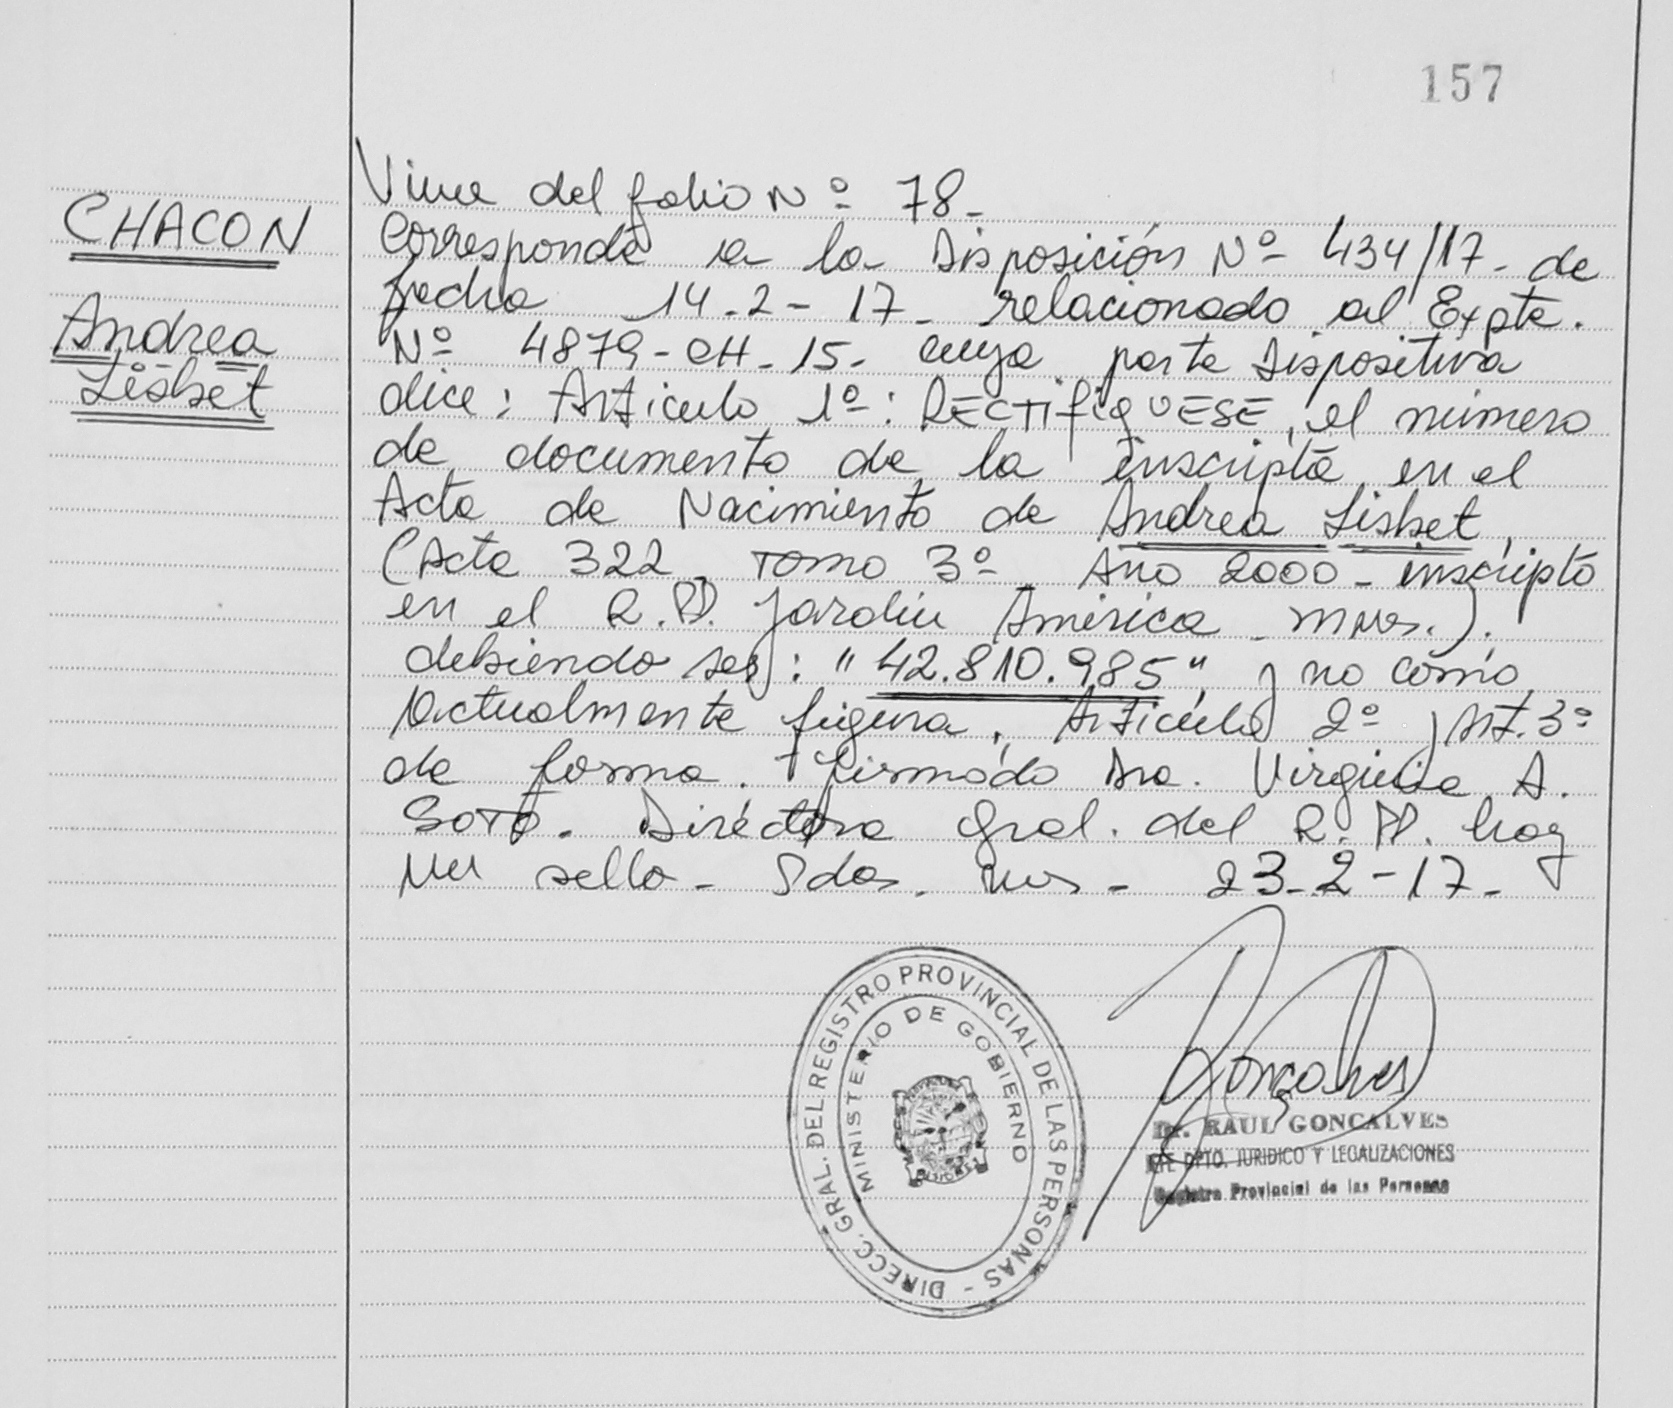 157
CHACON
Andrea
Lisbet
Viene del folio Nº 78-
Corresponde a la Disposición Nº 434/17- de
fecha 14-2-17- relacionado al Expte.
Nº 4879-CH-15- cuya parte Dispositiva
dice: Artículo 1º: RECTIFIQUESE, el número
de documento de la inscripta en el
Acta de Nacimiento de Andrea Lisbet,
(Acta 322- Tomo 3º- Año 2000- inscripto
en el R.PP. Jardín América - Mnes.).
debiendo ser: "42.810.985", y no como
actualmente figura. Artículo 2º y Art. 3º
de forma. Firmado Dra. Virginia A.
Soto. Directora Gral. del R.PP. hay
un sello- Pdas. Mnes- 23-2-17-
DIRECC. GRAL. DEL REGISTRO PROVINCIAL DE LAS PERSONAS -
MINISTERIO DE GOBIERNO
MISIONES
Goncalves
Dr. RAUL GONCALVES
JFE DPTO. JURIDICO Y LEGALIZACIONES
Registro Provincial de las Personas